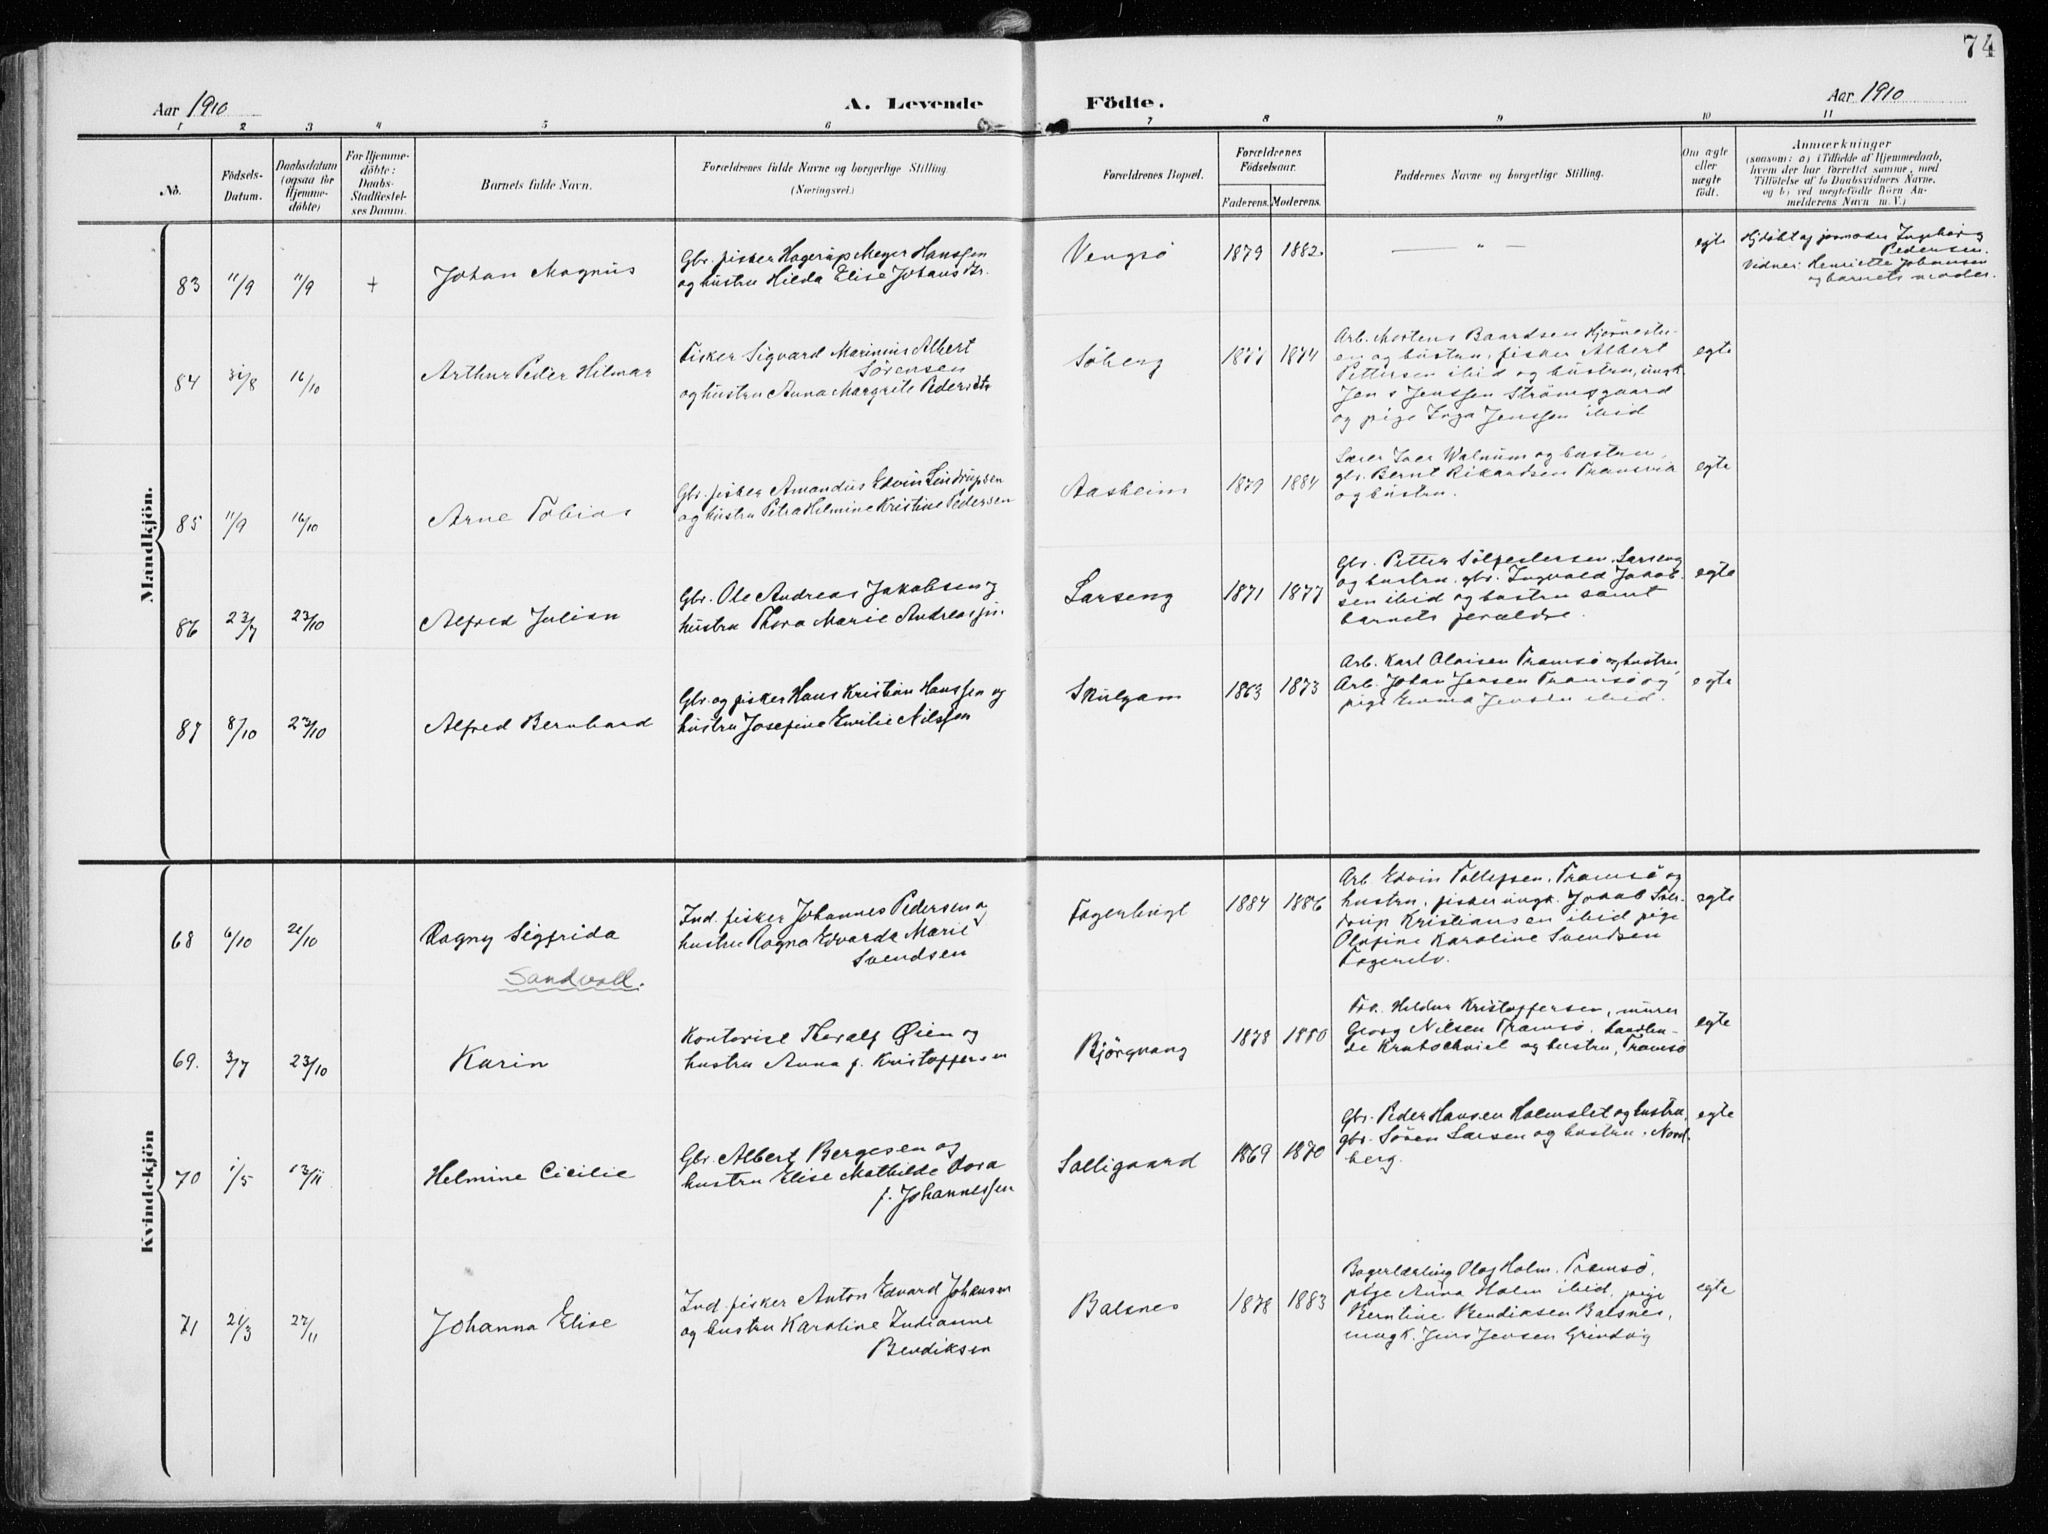 74
Aar 1910 A. Levende Födte. Aar 1910
1 2 3 4 5 6 7 8 9 10 11
No.
Födsels-
Datum.
Daabsdatum
(ogsaa for
Hjemme-
döbte)
For Hjemme-
döbte:
Daabs-
Stadfæstel-
ses Datum.
Barnets fulde Navn.
Forældrenes fulde Navne og borgerlige Stilling
(Næringsvei.)
Forældrenes Bopæl.
Forældrenes
Födselsaar.
Faderens. Moderens.
Faddernes Navne og borgerlige Stilling.
Om ægte
eller
uægte
födt.
Anmærkninger
(saasom: a) i Tilfælde af Hjemmedaab,
hvem der har forrettet samme, med
Tilföielse af to Daabsvidners Navne,
og b) ved uægtefödte Börn An-
melderens Navn m. V.)
Mandkjön.
83 11/9 11/9 + Johan Magnus
Gbr. fisker Hagerup Meyer Hanssen
og hustru Hilda Elise Johansdtr.
Vengsö 1879 1882 — " — egte
Hjdöbt af jormoder Ingeborg
Pedersen.
Vidner: Henriette Johansen
og barnets moder.
84 31/8 16/10 Arthur Peder Hilmar
Fisker Sigvard Marinius Albert
Sörensen
og hustru Anna Margrete Pedersdtr
Söberg 1877 1874
Arb. Mortens Baardsen Hjörneste-
en og hustru, fisker Albert
Pettersen ibid og hustru, ungk.
Jens Jenssen Strömsgaard
og pige Inga Jenssen ibid
egte
85 11/9 16/10 Arne Tobias
Gbr. fisker Amandus Edvin Lindrupsen
og hustru Petra Helmine Kristine Pedersen
Aasheim 1879 1884
Lærer Iver Walnum og hustru,
gbr. Bernt Rikardsen Tromvik
og hustru.
egte
86 23/7 23/10 Alfred Julian
Gbr. Ole Andreas Jakobsen og
hustru Thora Marie Andreasjdr.
Larseng 1871 1877
Gbr. Petter Sölfestersen, Larseng
og hustru, gbr. Ingvald Jakob-
sen ibid og hustru samt
barnets forældre.
egte
87 8/10 23/10 Alfred Bernhard
Gbr. og fisker Hans Kristian Hanssen og
hustru Josefine Emilie Nilssen
Skulgam 1863 1873
Arb. Karl Olaisen Tromsö og hustru,
Arb. Johan Jensen Tromsö og
pige Emma Jensen ibid.
egte
Kvindekjön
68 6/10 21/10 Dagny Sigfrida
Sandvoll.
Ind. fisker Johannes Pedersen og
hustru Ragna Edvarda Marie
Svendsen
Fagerbugt 1884 1886
Arb. Edvin Tollefsen, Tromsö og
hustru, fisker ungk. Jakob Sör-
drup Kristiansen ibid pige
Olufine Karoline Svendsen
Fagerelv.
egte
69. 3/7 23/10 Karin
Kontorist Thoralf Øien og
hustru Anna f. Kristoffersen
Björgvang 1878 1880
Frk. Heldur Kristoffersen, murer
Georg Nilsen Tromsö,
og hustru, Tromsö
egte
70 1/5 13/11 Helmine Cicilie
Gbr. Albert Bergesen og
hustru Elise Mathilde Dora
f. Johannessen
Solligaard 1869 1870
Gbr. Peder Hansen Holmslet og hustru,
gbr. Sören Larsen og hustru, Nord-
berg.
egte
71 21/3 27/11 Johanna Elise
Ind. fisker Anton Edvard Johansen
og hustru Karoline Indianne
Bendiksen
Balsnes 1878 1883
Bagerlærling Olaf Holm, Tromsö,
pige Anna Holm ibid, pige
Berntine Bendiksen Balsnes,
ungk. Jens Jensen Grindvig
egte